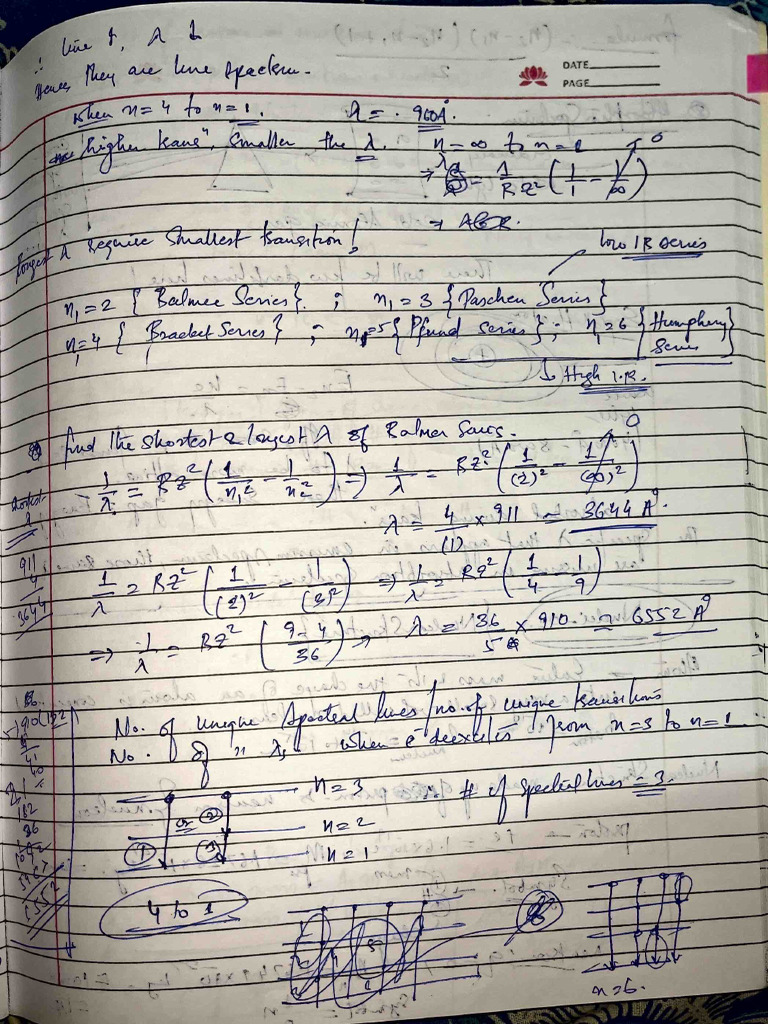 ∴ line f, λ ↓
Hence, they are line spectrum.
DATE
PAGE
when n=4 to n=1. λ = 960Å.
"higher trans", smaller the λ. n=∞ to n=1
= 1/RZ² (1/1 - 1/∞) 0
longest λ require smallest transition!
low IR series
n₁=2 { Balmer Series } ; n₁=3 { Paschen Series }
n₁=4 { Bracket Series } ; n₁=5 { Pfund series } ; n₁=6 { Humphery Series }
↳ High I.R.
Q find the shortest & longest λ of Balmer Series.
shortest λ
1/λ = RZ² (1/n₁² - 1/n₂²) ⇒ 1/λ = RZ² (1/(2)² - 1/(∞)²) 0
λ = 4/(1) × 911 = 3644 Å.
911
4
3644
1/λ = RZ² (1/(2)² - 1/(3)²) ⇒ 1/λ = RZ² (1/4 - 1/9)
⇒ 1/λ = RZ² (9-4/36) ⇒ λ = 36/5 × 910 = 6552 Å
No. of unique spectral lines / no. of unique transitions
No. of " λs when e⁻ deexcites from n=3 to n=1
n=3 ∴ # of spectral lines = 3.
or ②
n=2
① ③ n=1
4 to 1
6
n=6.